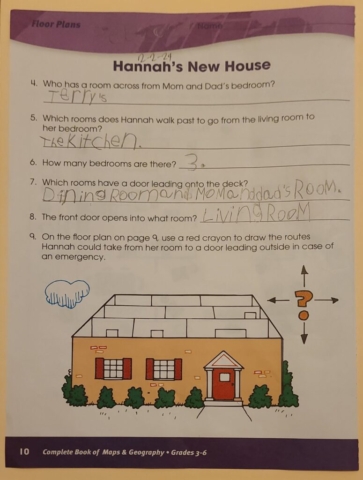 Floor Plans
12-2-24
Hannah's New House
4. Who has a room across from Mom and Dad's bedroom?
Terry's
5. Which rooms does Hannah walk past to go from the living room to
her bedroom?
The Kitchen.
6. How many bedrooms are there? 3.
7. Which rooms have a door leading onto the deck?
Dining Room and Mom and dad's Room.
8. The front door opens into what room? Living Room
9. On the floor plan on page 9, use a red crayon to draw the routes
Hannah could take from her room to a door leading outside in case of
an emergency.
?
10 Complete Book of Maps & Geography • Grades 3-6